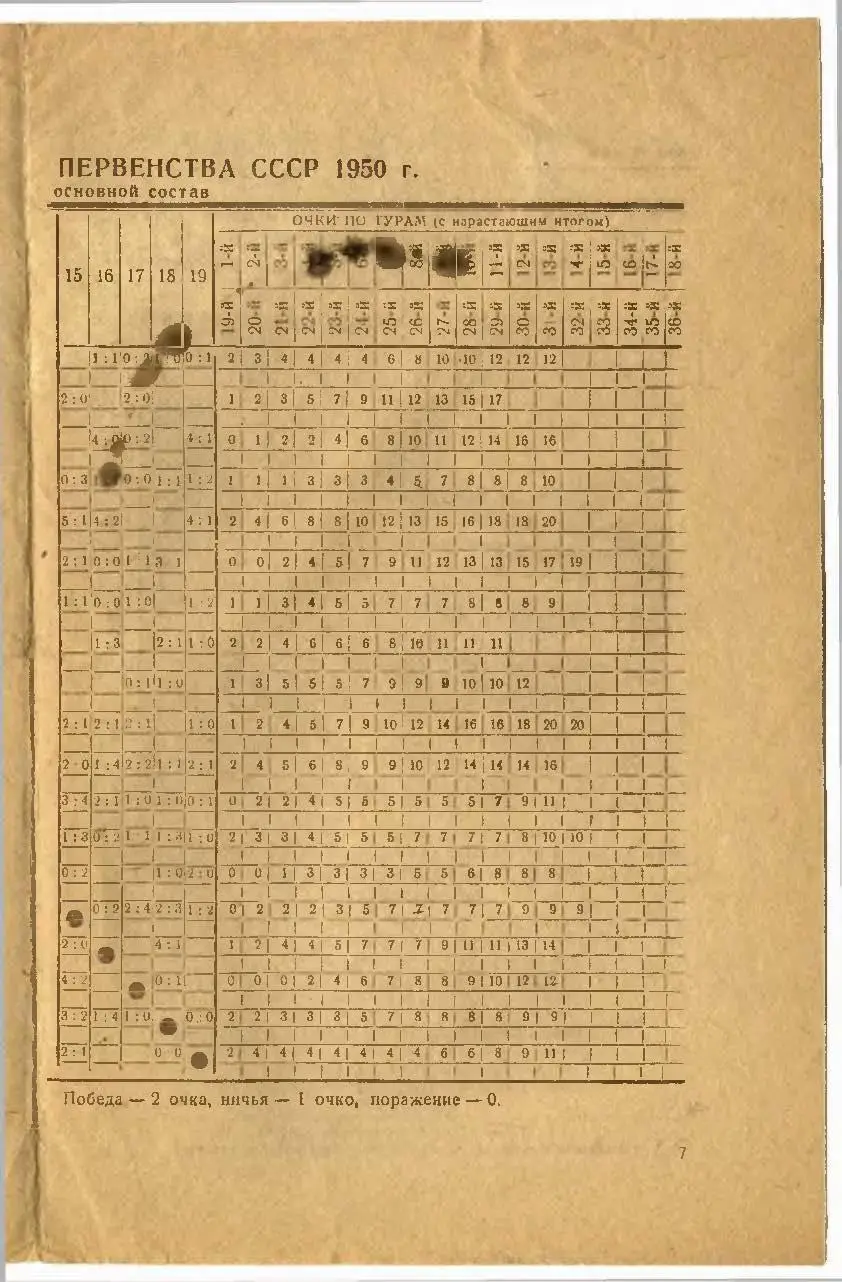 ПЕРВЕНСТВА СССР 1950 г.
основной состав
ОЧКИ ПО ТУРАМ (с нарастающим итогом)
15 16 17 18 19
1-й 2-й 3-й 8-й 11-й 12-й 13-й 14-й 15-й 16-й 17-й 18-й
19-й 20-й 21-й 22-й 23-й 24-й 25-й 26-й 27-й 28-й 29-й 30-й 31-й 32-й 33-й 34-й 35-й 36-й
1:1 0:1 2 3 4 4 4 4 6 8 10 10 12 12 12
2:0 2:0 1 2 3 5 7 9 11 12 13 15 17
0:2 4:1 0 1 2 2 4 6 8 10 11 12 14 16 16
0:3 0:0 1:1 1:2 1 1 1 3 3 3 4 5 7 8 8 8 10
5:1 4:2 4:1 2 4 6 8 8 10 12 13 15 16 18 18 20
2:1 0:0 1:1 3:1 0 0 2 4 5 7 9 11 12 13 13 15 17 19
1:1 0:0 1:0 1:2 1 1 3 4 5 5 7 7 7 8 8 8 9
1:3 2:1 1:0 2 2 4 6 6 6 8 10 11 11 11
0:1 1:0 1 3 5 5 5 7 9 9 9 10 10 12
2:1 2:1 2:1 1:0 1 2 4 5 7 9 10 12 14 16 16 18 20 20
2:0 1:4 2:2 1:1 2:1 2 4 5 6 8 9 9 10 12 14 14 14 16
3:4 2:1 1:0 1:0 0:1 0 2 2 4 5 5 5 5 5 5 7 9 11
1:3 0:2 1:1 1:3 1:0 2 3 3 4 5 5 5 7 7 7 7 8 10 10
0:2 1:0 2:0 0 0 1 3 3 3 3 5 5 6 8 8 8
0:2 2:4 2:3 1:2 0 2 2 2 3 5 7 7 7 7 7 9 9 9
2:0 4:1 1 2 4 4 5 7 7 7 9 11 11 13 14
4:2 0:1 0 0 0 2 4 6 7 8 8 9 10 12 12
3:2 1:4 1:0 0:0 2 2 3 3 3 5 7 8 8 8 8 9 9
2:1 0:0 2 4 4 4 4 4 4 4 6 6 8 9 11
Победа — 2 очка, ничья — 1 очко, поражение — 0.
7